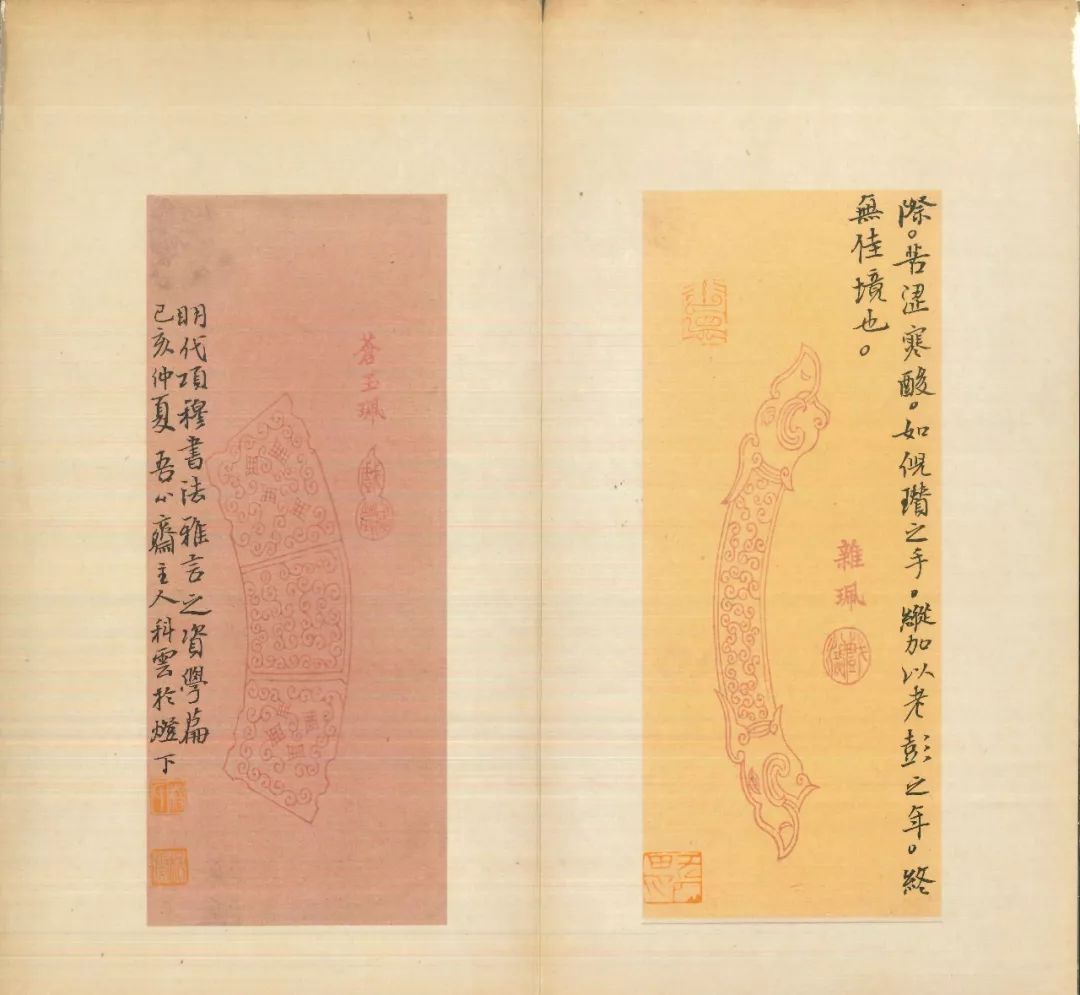 際。苦澀寒酸。如倪瓚之手。縱加以老彭之年。終
無佳境也。
雜珮
蒼玉珮
明代項穆書法雅言之資學篇
己亥仲夏 吾心齋主人科雲於燈下